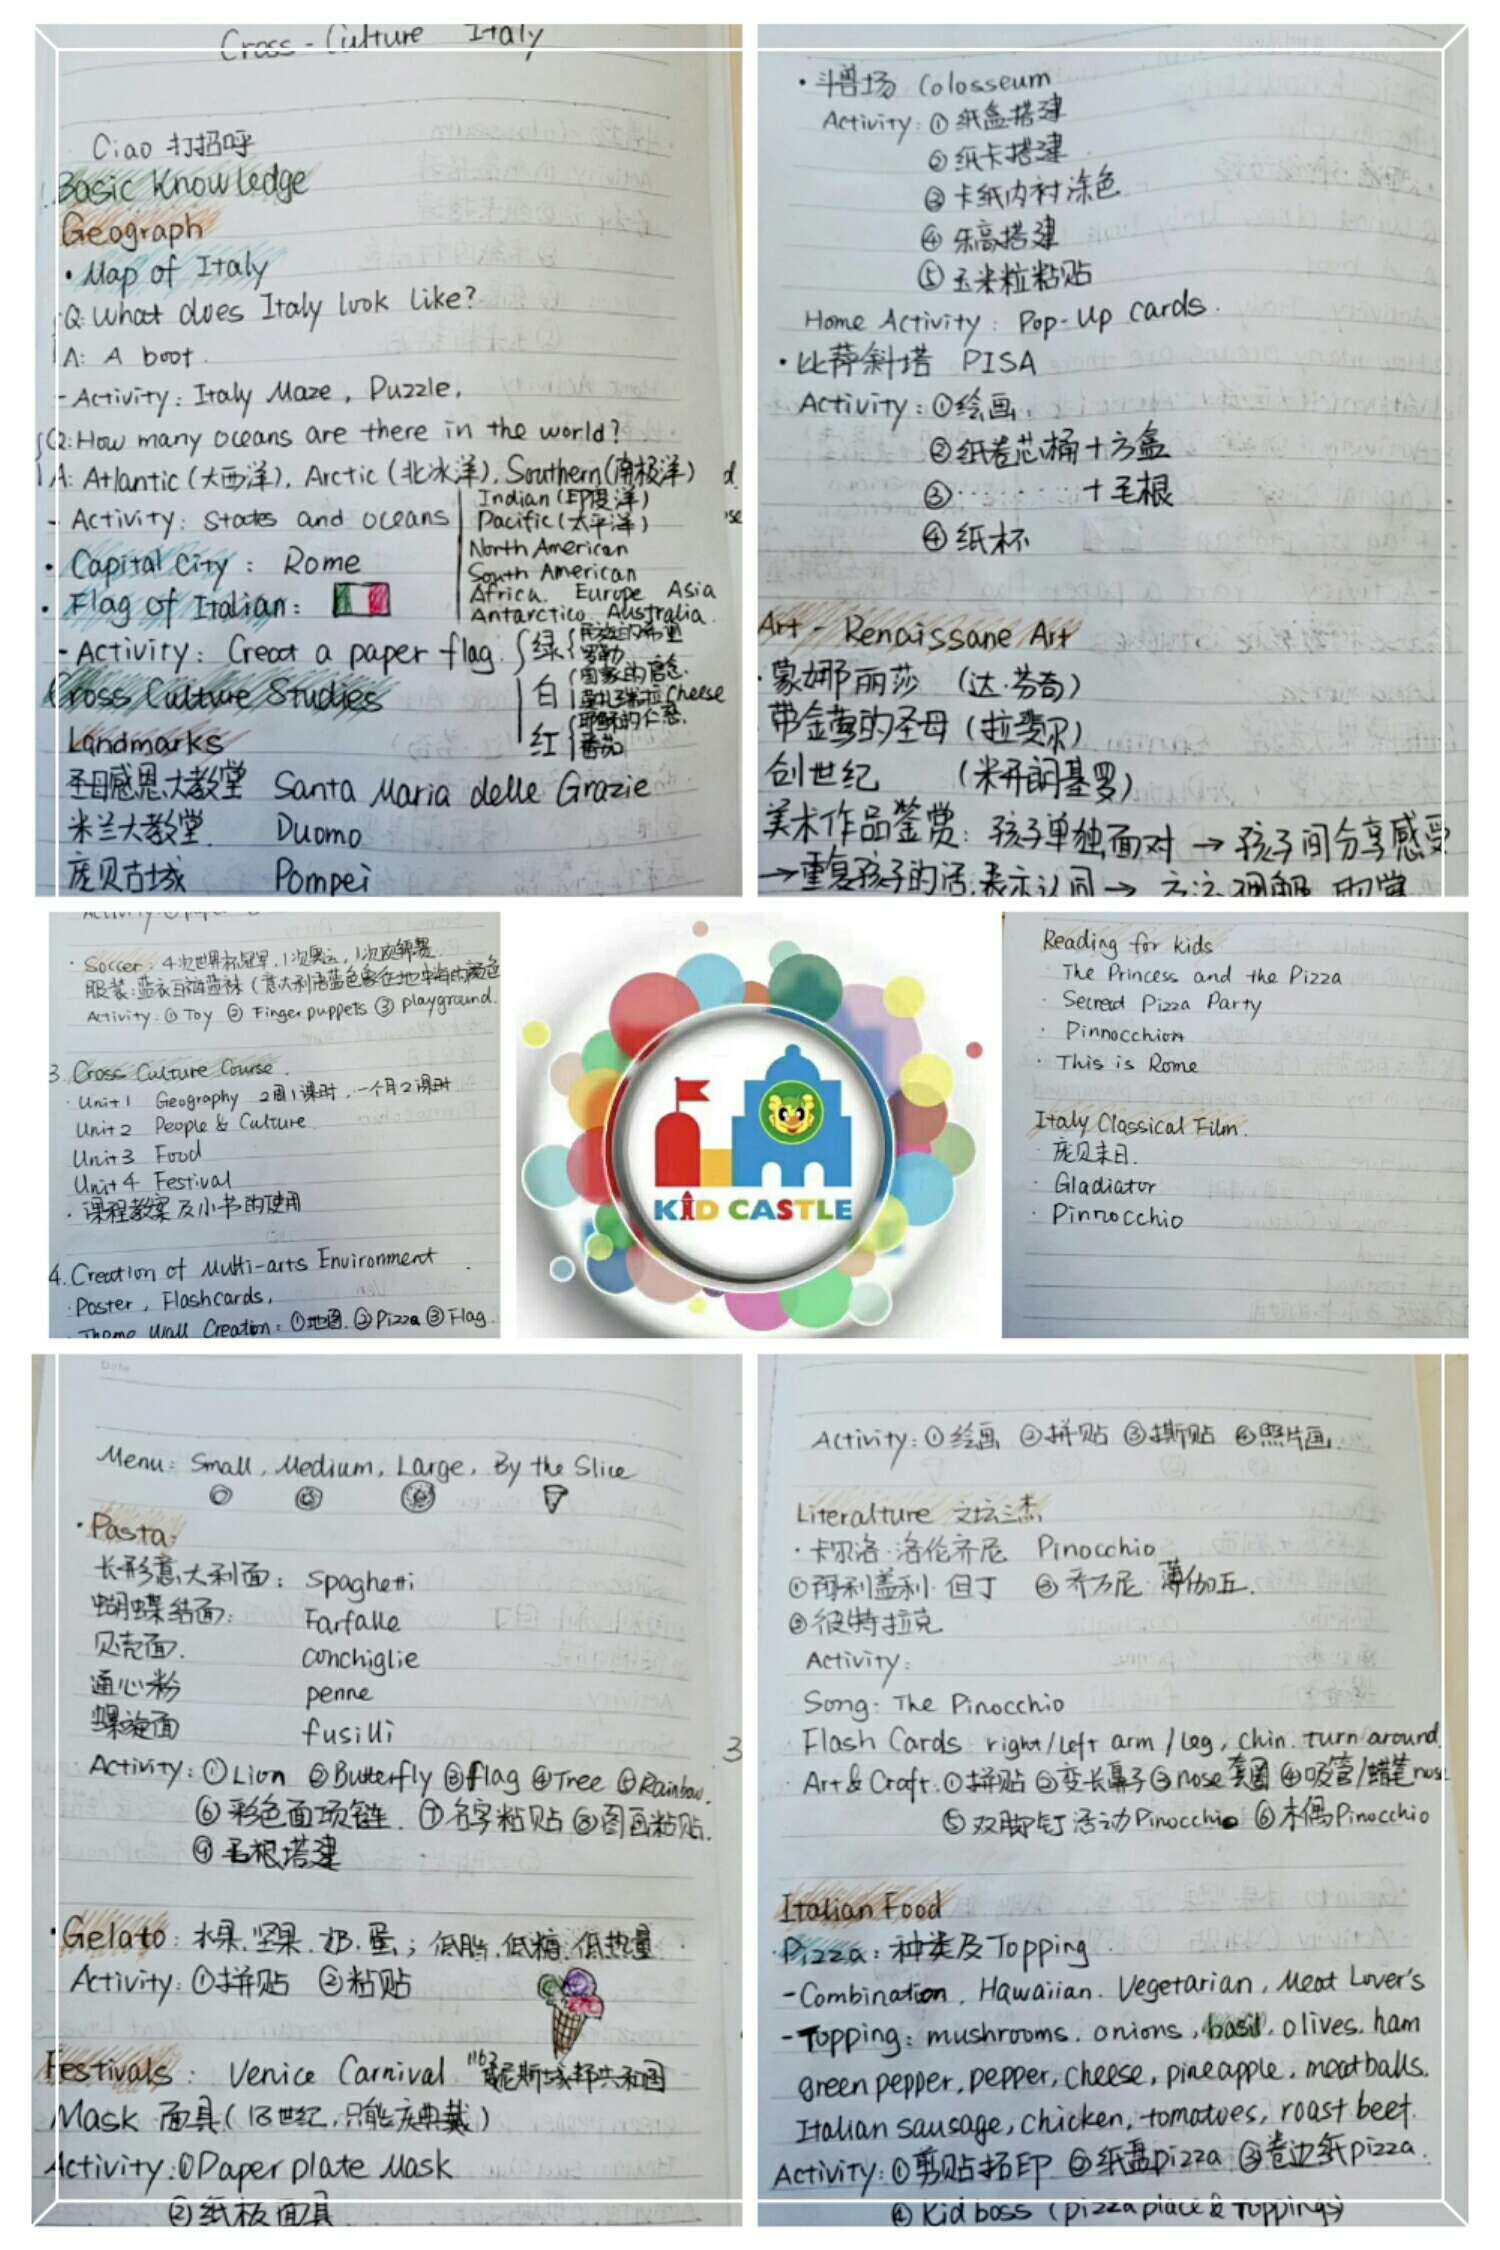 Cross-Culture Italy
Ciao 打招呼
Basic Knowledge
Geograph
· Map of Italy
Q: What does Italy look like?
A: A boot.
- Activity: Italy Maze, Puzzle.
Q: How many oceans are there in the world?
A: Atlantic (大西洋), Arctic (北冰洋), Southern (南极洋)
Indian (印度洋)
- Activity: States and oceans
Pacific (太平洋)
North American
South American
Africa. Europe Asia
Antarctica Australia.
· Capital City: Rome
· Flag of Italian:
- Activity: Creat a paper flag.
绿
罗勒
白
国家的信念
Cheese
红
番茄
Cross Culture Studies
Landmarks
圣母感恩大教堂 Santa Maria delle Grazie
米兰大教堂 Duomo
庞贝古城 Pompei
· 斗兽场 Colosseum
Activity: ① 纸盒搭建
② 纸卡搭建
③ 卡纸内衬涂色
④ 乐高搭建
⑤ 玉米粒粘贴
Home Activity: Pop-Up cards.
· 比萨斜塔 PISA
Activity: ① 绘画
② 纸卷芯桶+方盒
③ ········· +毛根
④ 纸杯
Art - Renaissane Art
· 蒙娜丽莎 (达·芬奇)
带金莺的圣母 (拉斐尔)
创世纪 (米开朗基罗)
美术作品鉴赏: 孩子单独面对 → 孩子间分享感受
→ 重复孩子的话,表示认同 →
· Soccer: 4次世界杯冠军,1次奥运,1次欧锦赛
Activity: ① Toy ② Finger puppets ③ playground.
3. Cross Culture Course.
· Unit 1 Geography 2周1课时,一个月2课时
Unit 2 People & Culture
Unit 3 Food
Unit 4 Festival
· 课程教案及小书的使用
4. Creation of Multi-arts Environment
· Poster, Flashcards,
· Theme Wall Creation: ①地图 ②Pizza ③Flag.
KID CASTLE
Reading for kids
· The Princess and the Pizza
· Secred Pizza Party
· Pinnocchion
· This is Rome
Italy Classical Film.
· 庞贝末日.
· Gladiator
· Pinnocchio
Date
Menu: Small, Medium, Large, By the Slice
· Pasta
长形意大利面: Spaghetti
蝴蝶结面: Farfalle
贝壳面. conchiglie
通心粉 penne
螺旋面 fusilli
Activity: ① Lion ② Butterfly ③ flag ④ Tree ⑤ Rainbow.
⑥ 彩色面项链 ⑦ 名字粘贴 ⑧ 图画粘贴.
⑨ 毛根搭建
· Gelato: 水果.坚果.奶.蛋; 低脂.低糖.低热量
Activity: ① 拼贴 ② 粘贴
Festivals: Venice Carnival 1162 威尼斯城邦共和国
Mask 面具 (18世纪,只能庆典戴)
Activity: ① Paper plate Mask
② 纸板面具
Activity: ① 绘画 ② 拼贴 ③ 撕贴 ④ 照片画.
Literalture 文坛三杰
· 卡尔洛·洛伦齐尼 Pinocchio
① 阿利盖利·但丁 ③ 乔万尼·薄伽丘.
② 彼特拉克
Activity:
Song: The Pinocchio
Flash Cards right/left arm/leg, chin. turn around.
Art & Craft: ① 拼贴 ② 变长鼻子 ③ nose 套圈 ④ 吸管/蜡笔 nose
⑤ 双脚钉活动 Pinocchio ⑥ 木偶 Pinocchio
Italian Food
Pizza: 种类及Topping
- Combination, Hawaiian. Vegetarian, Meat Lover's
- Topping: mushrooms. onions, basil, olives. ham
green pepper, pepper, cheese, pineapple, meatballs.
Italian sausage, chicken, tomatoes, roast beef.
Activity: ① 剪贴拓印 ② 纸盘pizza ③ 卷边纸pizza.
④ Kid boss (pizza place & toppings)